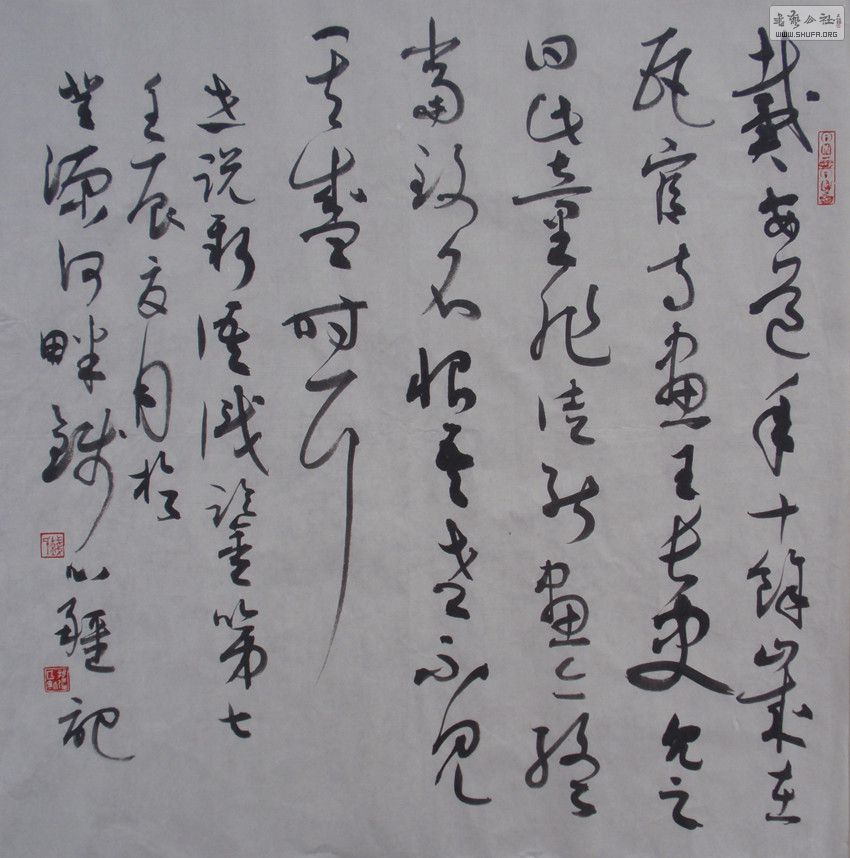 戴安道年十餘歲在
瓦官寺畫王長史見之
曰此童非徒能畫亦終
當致名恨吾老不見
其盛時耳
世説新語識鑒第七
壬辰夏月於
源河畔錢心疆記
書藝公社
WWW.SHUFA.ORG